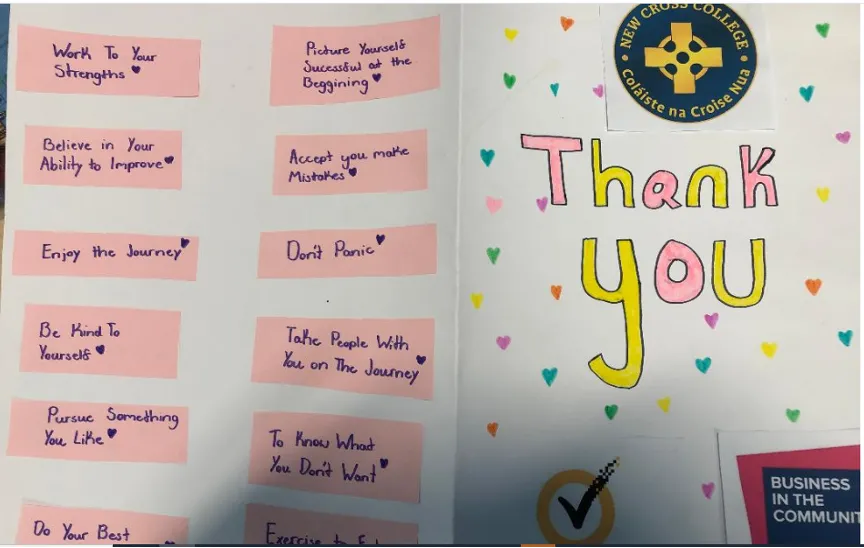 Work To Your
Strengths
Believe in Your
Ability to Improve
Enjoy the Journey
Be Kind To
Yourself
Pursue Something
You Like
Do Your Best
Picture Yourself
Sucessful at the
Beggining
Accept you make
Mistakes
Don't Panic
Take People With
You on The Journey
To Know What
You Don't Want
Exercise to
NEW CROSS COLLEGE
Coláiste na Croise Nua
Thank
you
BUSINESS
IN THE
COMMUNIT